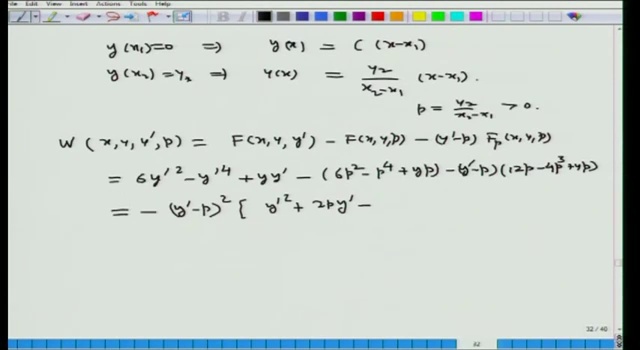 File Edit View Insert Actions Tools Help
y(x₁)=0 ⇒ y(x) = C (x-x₁)
y(x₂)=y₂ ⇒ y(x) = y₂/(x₂-x₁) (x-x₁).
p = y₂/(x₂-x₁) >0.
W (x,y,y',p) = F(x,y,y') - F(x,y,p) - (y'-p) Fₚ(x,y,p)
= 6y'² - y'⁴ + yy' - (6p² - p⁴ + yp) - (y'-p)(12p-4p³+yp)
= - (y'-p)² { y'² + 2py' -
32 / 40
32